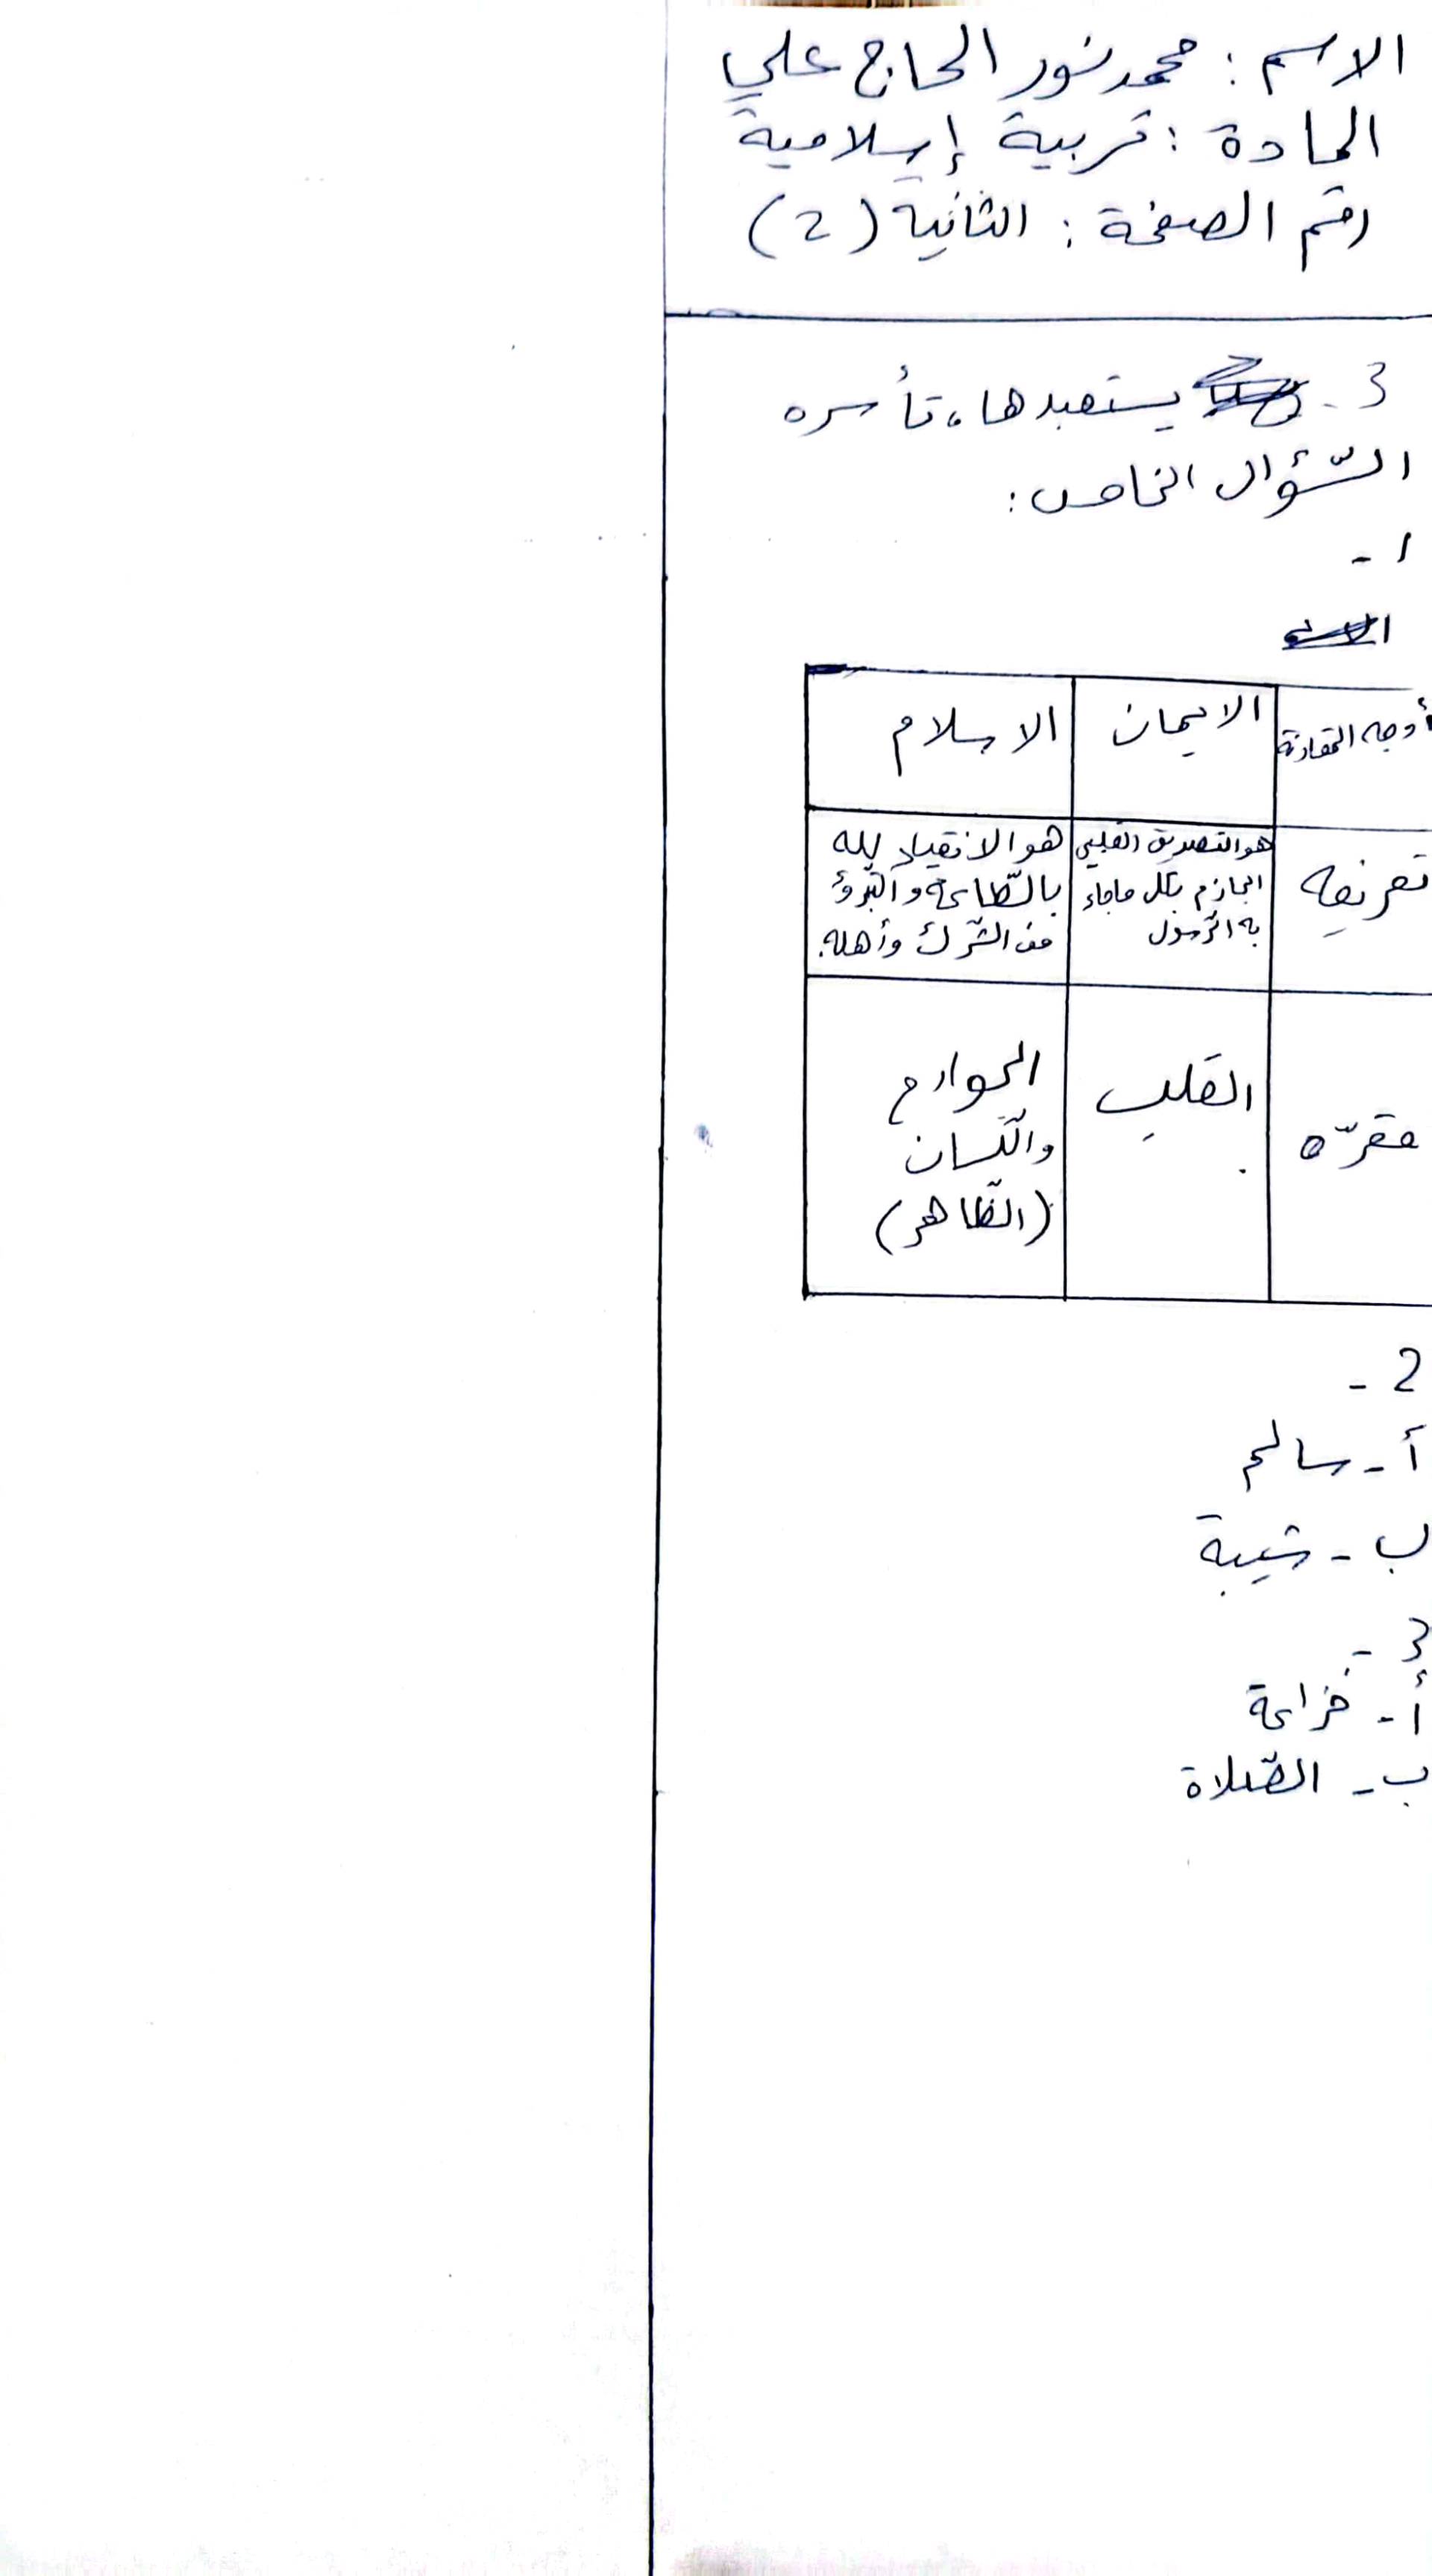 الاسم : محمد نور الحاج علي
المادة : تربية إسلامية
رقم الصفحة : الثانية (2)
3 - يستعبدها، تأسره
السّؤال الخامس :
1 -
أوجه المقارنة
الايمان
الاسلام
تعريفه
هو التصديق القلبي
الجازم بكل ما جاء
به الرّسول
هو الانقياد لله
بالطّاعة و البّروءُ
من الشّرك وأهله.
مقرّه
القلب
الجوارح
واللّسان
(الظّاهر)
2 -
أ - سالم
ب - شيبة
3 -
أ - خزاعة
ب - الصّلاة